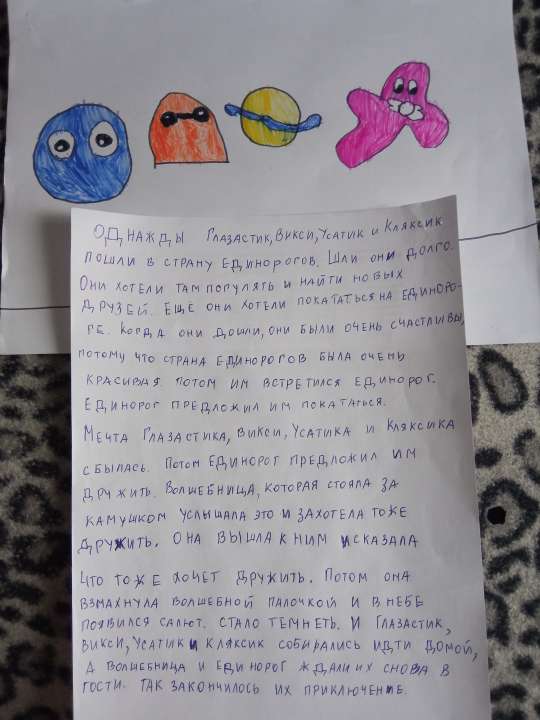 Однажды Глазастик, Викси, Усатик и Кляксик
пошли в страну единорогов. Шли они долго.
Они хотели там погулять и найти новых
друзей. Ещё они хотели покататься на единоро-
ге. Когда они дошли, они были очень счастливы,
потому что страна единорогов была очень
красивая. Потом им встретился единорог.
Единорог предложил им покататься.
Мечта Глазастика, Викси, Усатика и Кляксика
сбылась. Потом единорог предложил им
дружить. Волшебница, которая стояла за
камушком услышала это и захотела тоже
дружить. Она вышла к ним и сказала
что тоже хочет дружить. Потом она
взмахнула волшебной палочкой и в небе
появился салют. Стало темнеть. И Глазастик,
Викси, Усатик и Кляксик собирались идти домой,
а волшебница и единорог ждали их снова в
гости. Так закончилось их приключение.